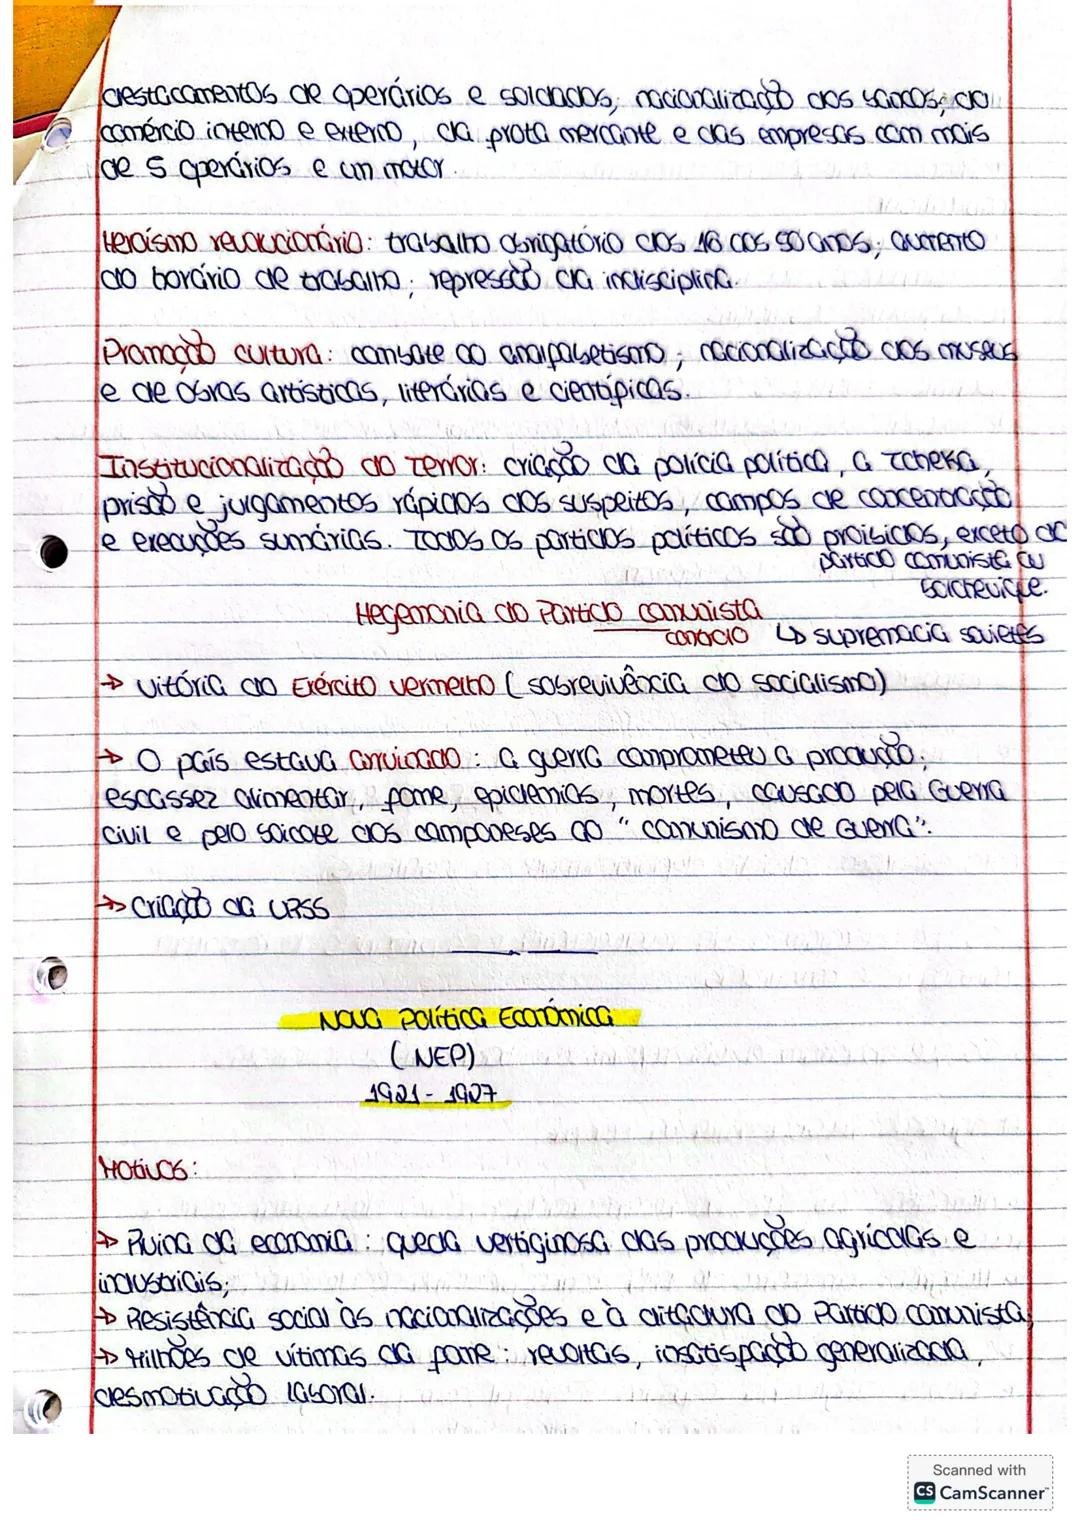 destacamentos de operários e soldados; nacionalização dos bancos, do
comércio interno e externo, da frota mercante e das empresas com mais
de 5 operários e um motor.
Heroísmo revolucionário: trabalho obrigatório dos 16 aos 50 anos; aumento
do horário de trabalho; repressão da indisciplina.
Promoção cultura: combate ao analfabetismo; nacionalização dos museus
e de obras artísticas, literárias e científicas.
Institucionalização do terror: criação da polícia política, a Tcheka,
prisão e julgamentos rápidos dos suspeitos, campos de concentração
e execuções sumárias. Todos os partidos políticos são proibidos, exceto do
partido comunista ou
bolchevique.
Hegemonia do Partido comunista
↳ supremacia sovietes
→ Vitória do Exército vermelho (sobrevivência do socialismo)
→ O país estava arruinado: a guerra comprometeu a produção;
escassez alimentar, fome, epidemias, mortes, causado pela Guerra
Civil e pelo boicote dos camponeses ao "comunismo de Guerra".
→ Criação da URSS
Nova Política Económica
(NEP)
1921 - 1927
Motivos:
→ Ruina da economia: queda vertiginosa das produções agrícolas e
industriais;
→ Resistência social às nacionalizações e à ditadura do Partido comunista;
→ Milhões de vítimas da fome: revoltas, insatisfação generalizada,
desmotivação laboral.
Scanned with
CS CamScanner